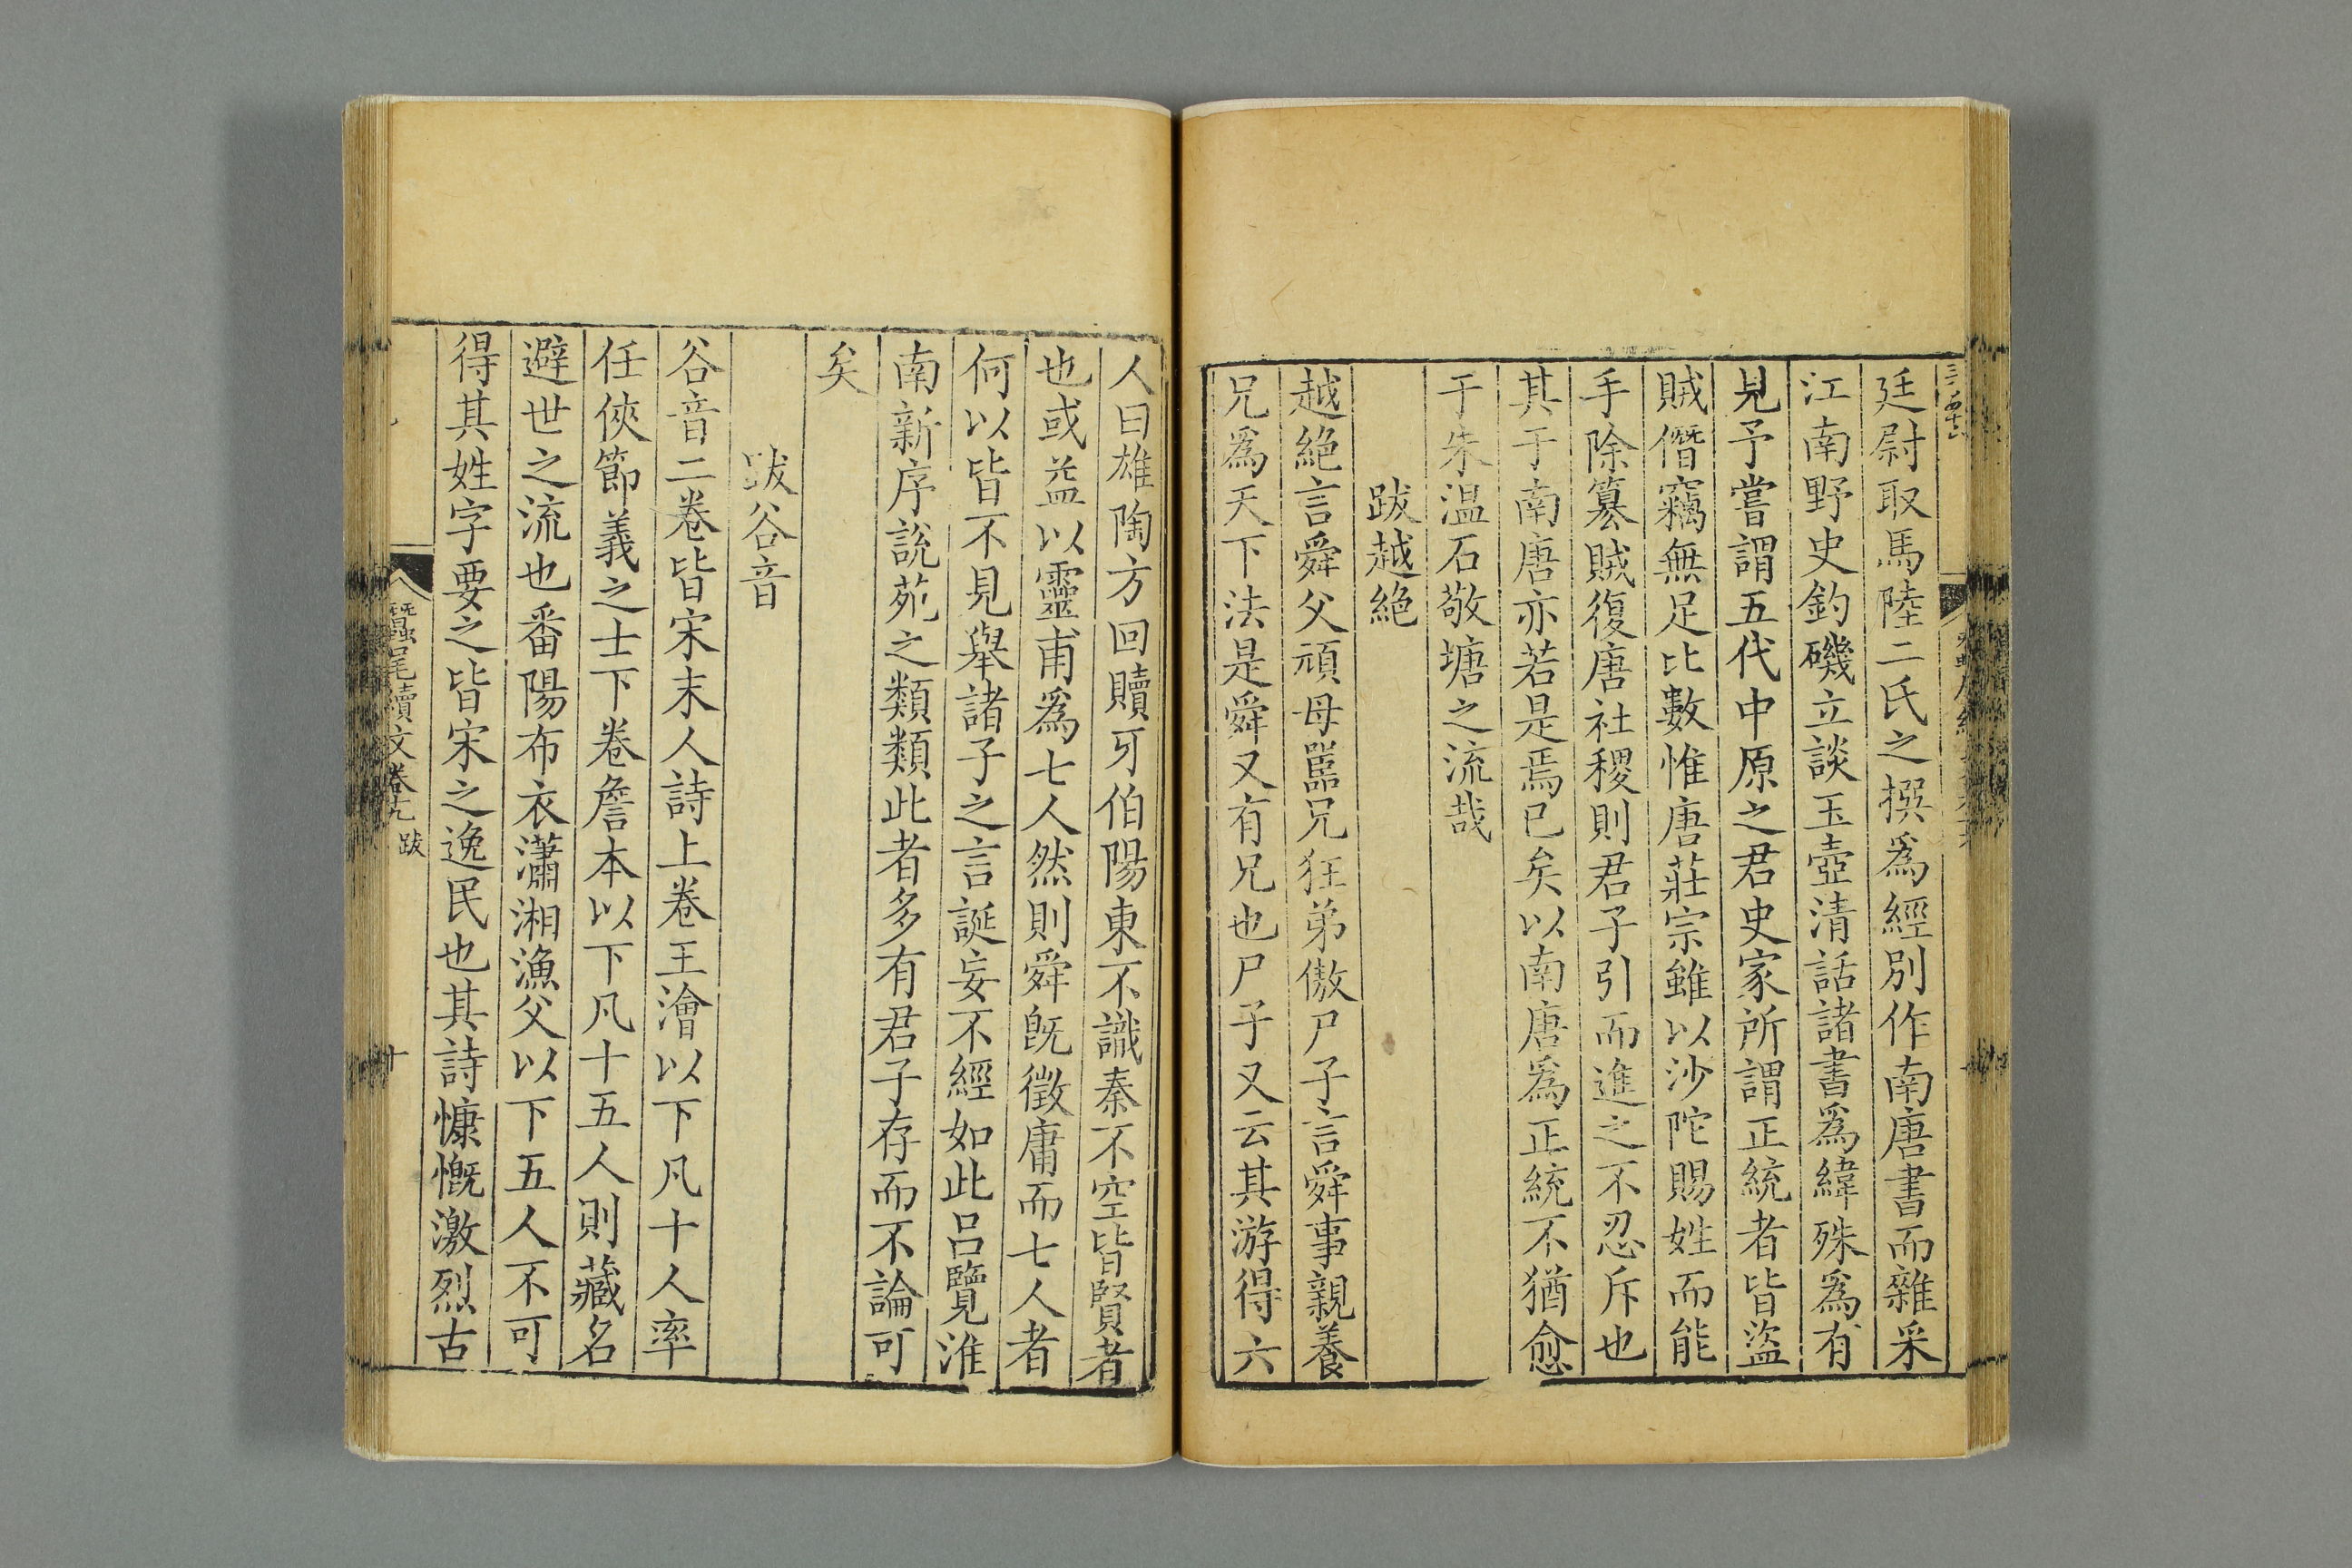 廷尉取馬陸二氏之撰爲經別作南唐書而雜采
江南野史釣磯立談玉壺清話諸書爲緯殊爲有
見予嘗謂五代中原之君史家所謂正統者皆盜
賊僭竊無足比數惟唐莊宗雖以沙陀賜姓而能
手除簒賊復唐社稷則君子引而進之不忍斥也
其于南唐亦若是焉已矣以南唐爲正統不猶愈
于朱温石敬塘之流哉
跋越絶
越絶言舜父頑母嚚兄狂弟傲尸子言舜事親養
兄爲天下法是舜又有兄也尸子又云其游得六
人曰雄陶方回贖牙伯陽東不識秦不空皆賢者
也或益以靈甫爲七人然則舜旣徵庸而七人者
何以皆不見舉諸子之言誕妄不經如此呂覽淮
南新序說苑之類類此者多有君子存而不論可
矣
跋谷音
谷音二卷皆宋末人詩上卷王澮以下凡十人率
任俠節義之士下卷詹本以下凡十五人則藏名
避世之流也番陽布衣瀟湘漁父以下五人不可
得其姓字要之皆宋之逸民也其詩慷慨激烈古
蠶尾續文卷十九 跋 十